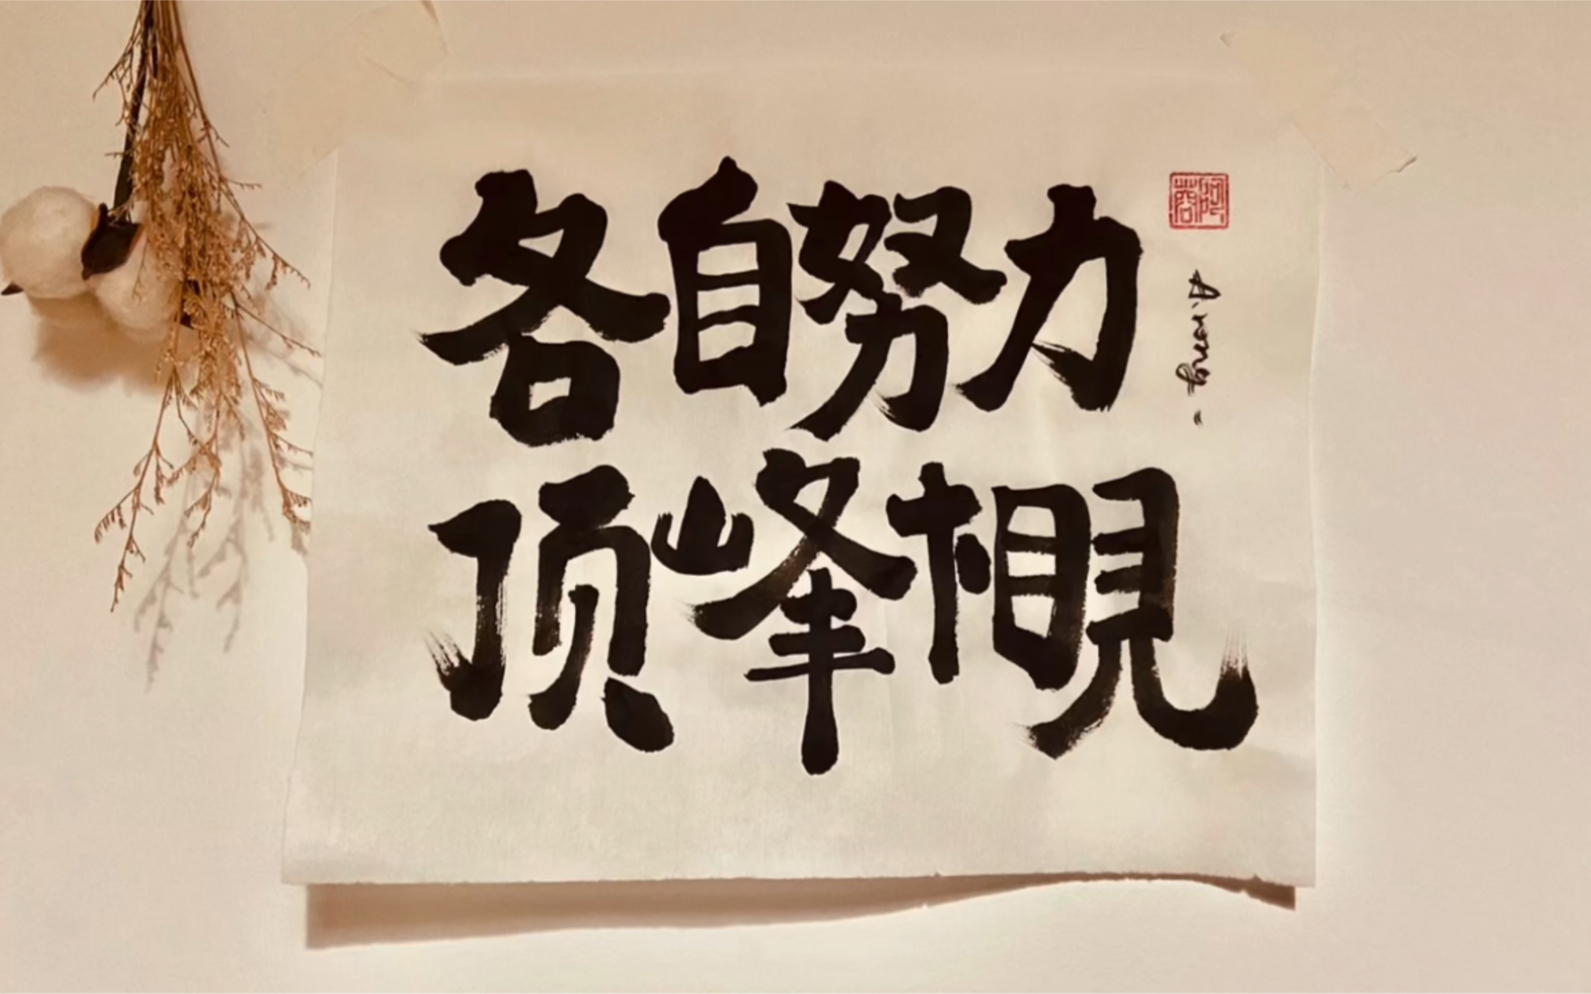 各自努力
顶峰相見
A.rong